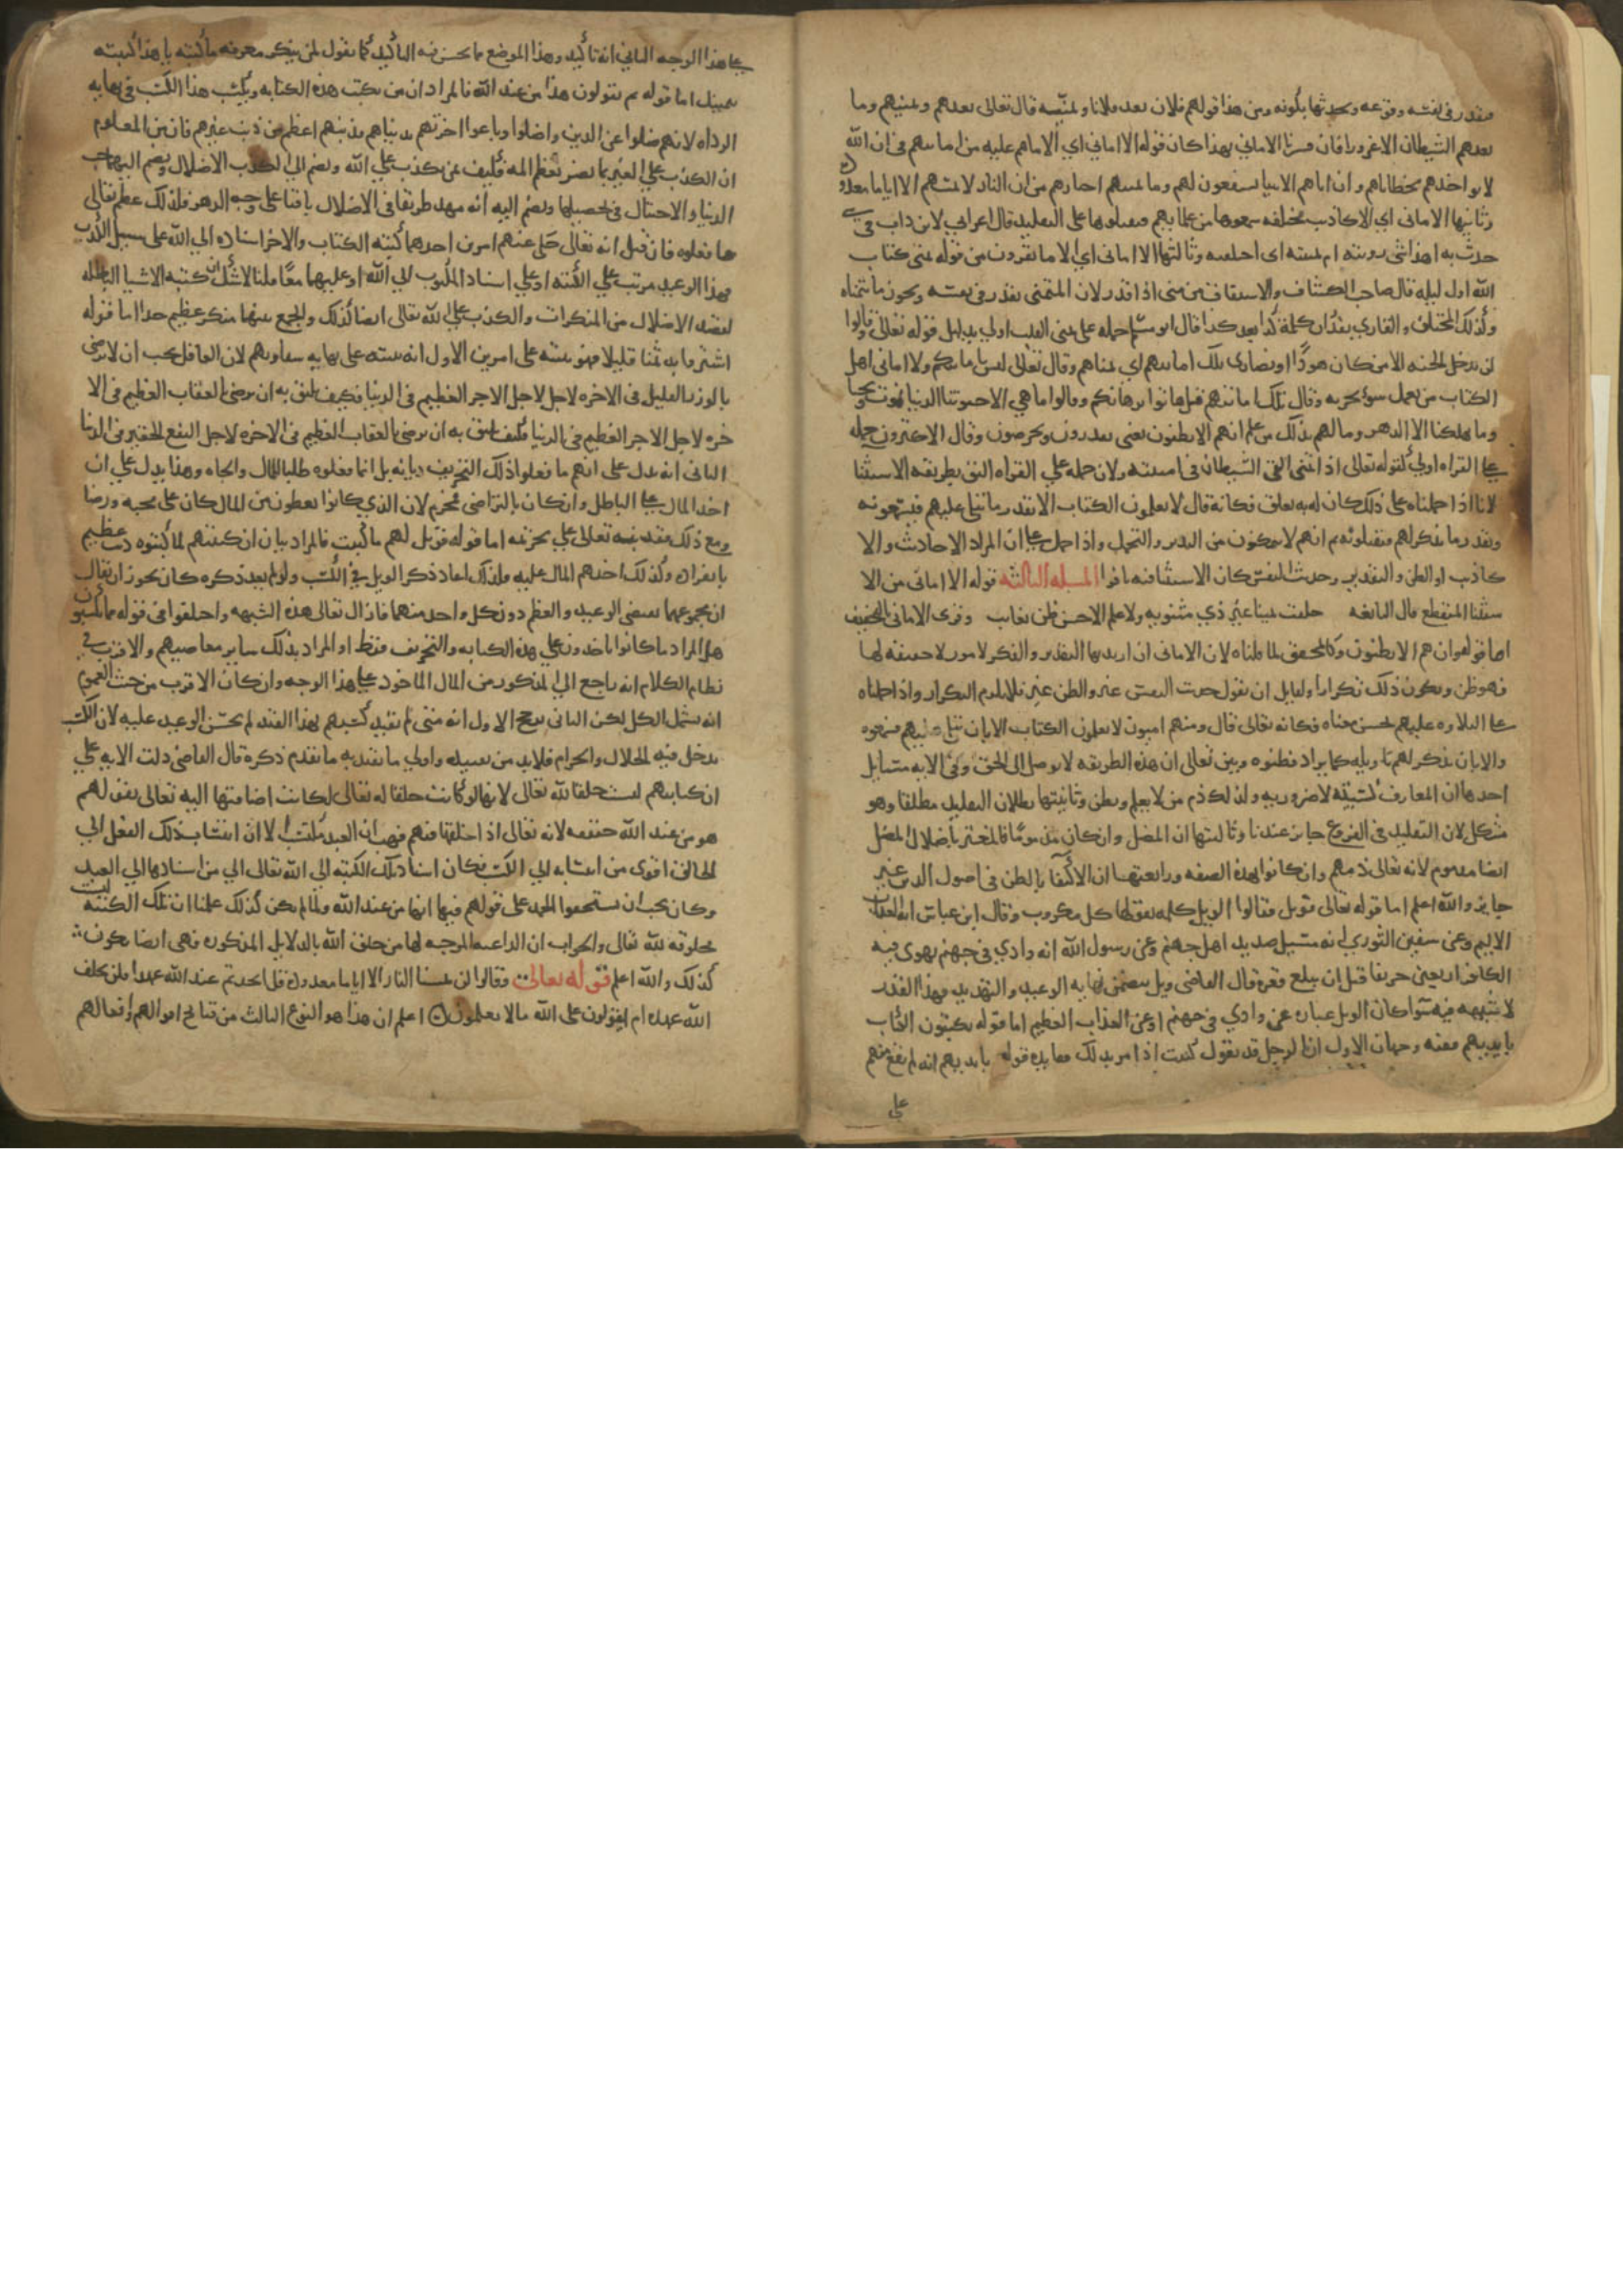 فيقدر في نفسه وقوعه ويحدثها بكونه ومن هذا قولهم فلان يعد فلانا ويمنيه قال تعالى يعدهم ويمنيهم وما
يعدهم الشيطان الا غرورا فان فسرنا الاماني بهذا كان قوله الا اماني اي الا ما هم عليه من امانيهم في ان الله
لا يواخذهم بخطاياهم وان اباهم الانبيا يشفعون لهم وما تمنيهم احبارهم من ان النار لا تمسهم الا اياما معدوده
وثانيها الاماني اي الا كاذيب مختلفه سمعوها من علمايهم فقبلوها على التقليد قال اعرابي لابن داب في شي
حدث به اهذا شي رويته ام تمنيته اي اختلقته وثالثها الا اماني اي الا ما يقرون من قوله تمنى كتاب
الله اول ليله قال صاحب الكشاف والاشتقاق من منى اذا قدر لان المتمني يقدر في نفسه ويحزر ما يتمناه
وكذلك المختلق والقاري يقدر ان كلمة كذا بعد كذا قال ابو مسلم حمله على تمني القلب اولى بدليل قوله تعالى وقالوا
لن يدخل الجنه الا من كان هودًا او نصارى تلك امانيهم اي تمناهم وقال تعالى ليس بامانيكم ولا اماني اهل
الكتاب من يعمل سوًا يجز به وقال تلك امانيهم قل هاتوا برهانكم وقالوا ما هي الا حيوتنا الدنيا نموت ونحيا
وما يهلكنا الا الدهر وما لهم بذلك من علم ان هم الا يظنون يعني يقدرون ويخرصون وقال الاكثرون حمله
على القراه اولى لقوله تعالى اذا تمنى القى الشيطان في امنيته ولان حمله علي القراه اليق بطريقه الاستثنا
لانا اذا حملناه على ذلك كان له به تعلق فكانه قال لا يعلمون الكتاب الا بقدر ما يتلى عليهم فيسمعونه
وبقدر ما يذكر لهم فيقبلونه ثم انهم لا يتمكنون من التدبر والتحمل واذا حمل على ان المراد الاحاديث والا
كاذيب او الظن والتقدير وحديث النفس كان الاستثنا فيه نادرا المسله الثالثه قوله الا اماني من الا
ستثنا المنقطع قال النابغه حلفت يمينا غير ذي مثنويه ولا علم الا حسن ظن بغايب وقرى الاماني بالتخفيف
اما قوله وان هم الا يظنون فكالمحقق لما قلناه لان الاماني ان اريد بها التقدير والفكر لامور لا حقيقه لها
فهو ظن ويكون ذلك تكرارا ولقايل ان يقول حديث النفس غير والظن غير فلا يلزم التكرار واذا حملناه
على التلاوه عليهم يحسن معناه فكانه تعالى قال ومنهم اميون لا يعلمون الكتاب الا بان يتلى عليهم فيسمعوه
والا بان يذكر لهم تاويله كما يراد فيظنوه وبين تعالى ان هذه الطريقه لا توصل الى الحق وفي الايه مسايل
احدها ان المعارف كسبيه لا ضروريه ولذلك ذم من لا يعلم ويظن وثانيتها بطلان التقليد مطلقا وهو
مشكل لان التقليد في الفروع جايز عندنا وثالثتها ان المضل وان كان مذمومًا فالمغتر باضلال المضل
ايضا مذموم لانه تعالى ذمهم وان كانوا بهذه الصفه ورابعتها ان الاكتفا بالظن في اصول الدين غير
جايز والله اعلم اما قوله تعالى فويل فقالوا الويل كلمه يقولها كل مكروب وقال ابن عباس انه العذاب
الاليم وعن سفين الثوري انه مسيل صديد اهل جهنم وعن رسول الله انه وادي في جهنم يهوي فيه
الكافر اربعين خريفا قبل ان يبلغ قعره قال القاضي ويل يتضمن نهايه الوعيد والتهديد فهذا القدر
لا شبهه فيه سوا كان الويل عباره عن وادي في جهنم او عن العذاب العظيم اما قوله يكتبون الكتاب
بايديهم ففيه وجهان الاول ان الرجل قد يقول كتبت اذا امر بذلك ففايده قوله بايديهم انه لم يقع منهم
على
على هذا الوجه الثاني انه تاكيد وهذا الموضع مما يحسن فيه التاكيد كما تقول لمن ينكر معرفه ما كتبه يا هذا كتبته
بيمينك اما قوله ثم يقولون هذا من عند الله فالمراد ان من يكتب هذه الكتابه ويكسب هذا الكسب في نهايه
الرداه لانهم ضلوا عن الدين واضلوا وباعوا اخرتهم بدنياهم فذنبهم اعظم من ذنب غيرهم فان من المعلوم
ان الكذب علي الغير بما يضر تعظم المه فكيف بمن يكذب علي الله ويضم الي الكذب الاضلال ويضم اليهما حب
الدنيا والاحتال في تحصيلها ويضم اليه انه مهد طريقا في الاضلال باقيا على وجه الدهر فلذلك عظم تعالى
ما فعلوه فان قيل انه تعالى حكى عنهم امرين احدهما كتبه الكتاب والاخر اسناده الي الله على سبيل الكذب
فهذا الوعيد مرتب علي الكتبه او علي اسناد المكتوب الي الله او عليهما معًا قلنا لا شك ان كتبه الاشيا الباطله
لقصد الاضلال من المنكرات والكذب على الله تعالى ايضا كذلك والجمع بينهما منكر عظيم جدا اما قوله
اشتروا به ثمنا قليلا فهو تنبيه على امرين الاول انه تنبيه على نهايه شقاوتهم لان العاقل يجب ان لا يرضى
بالوزر القليل في الاخره لاجل لاجل الاجر العظيم في الدنيا فكيف يليق به ان يرضى بالعقاب العظيم في الا
خره لاجل الاجر العظيم في الدنيا فكيف يليق به ان يرضى بالعقاب العظيم في الاخره لاجل النفع الحقير في الدنيا
الثاني انه يدل على انهم ما فعلوا ذلك التحريف ديانه بل انما فعلوه طلبا للمال والجاه وهذا يدل علي ان
اخذ المال على الباطل وان كان بالتراضي محرم لان الذي كانوا يعطون من المال كان على محبه ورضا
ومع ذلك فقد نبه تعالى علي تحريمه اما قوله فويل لهم مما كتبت فالمراد بيان ان كتبتهم لما كتبوه ذنب عظيم
بانفراده وكذلك اخذهم المال عليه ولذلك اعاد ذكر الويل في الكسب ولو لم يعد ذكره كان يجوز ان يقال
ان مجموعهما يقتضي الوعيد والعظم دون كل واحد منهما فازال تعالى هذه الشبهه واختلفوا في قوله مما يكسبون
هل المراد ما كانوا ياخذون علي هذه الكتابه والتحريف فقط او المراد بذلك ساير معاصيهم والاقرب في
نظام الكلام انه راجع الي المذكور من المال الماخوذ على هذا الوجه وان كان الاقرب من حيث العموم
انه يشمل الكل لكن الذي يرجح الاول انه متى لم يقيد كسبهم بهذا القيد لم يحسن الوعيد عليه لان الكسب
يدخل فيه الحلال والحرام فلا بد من تقييده واولى ما يقيد به ما تقدم ذكره قال القاضي دلت الايه علي
ان كتابتهم ليست خلقا لله تعالى لانها لو كانت خلقا له تعالى لكانت اضافتها اليه تعالى بقولهم
هو من عند الله حقيقه لانه تعالى اذا خلقها فيهم فهب ان العبد مكتسب الا ان انتساب ذلك الفعل الي
الخالق اقوى من انتسابه الي المكتسب فكان اسناد تلك الكتبه الي الله تعالى اولى من اسنادها الي العبد
وكان يجب ان يستحقوا الحمد على قولهم فيها انها من عند الله ولما لم يكن كذلك علمنا ان تلك الكتبه ليست
مخلوقه لله تعالى والجواب ان الداعيه الموجبه لها من خلق الله بالدلايل المذكوره فهي ايضا يكون
كذلك والله اعلم قوله تعالى وقالوا لن تمسنا النار الا اياما معدوده قل اتخذتم عند الله عهدا فلن يخلف
الله عهده ام تقولون على الله ما لا تعلمون اعلم ان هذا هو النوع الثالث من قبايح اقوالهم وافعالهم